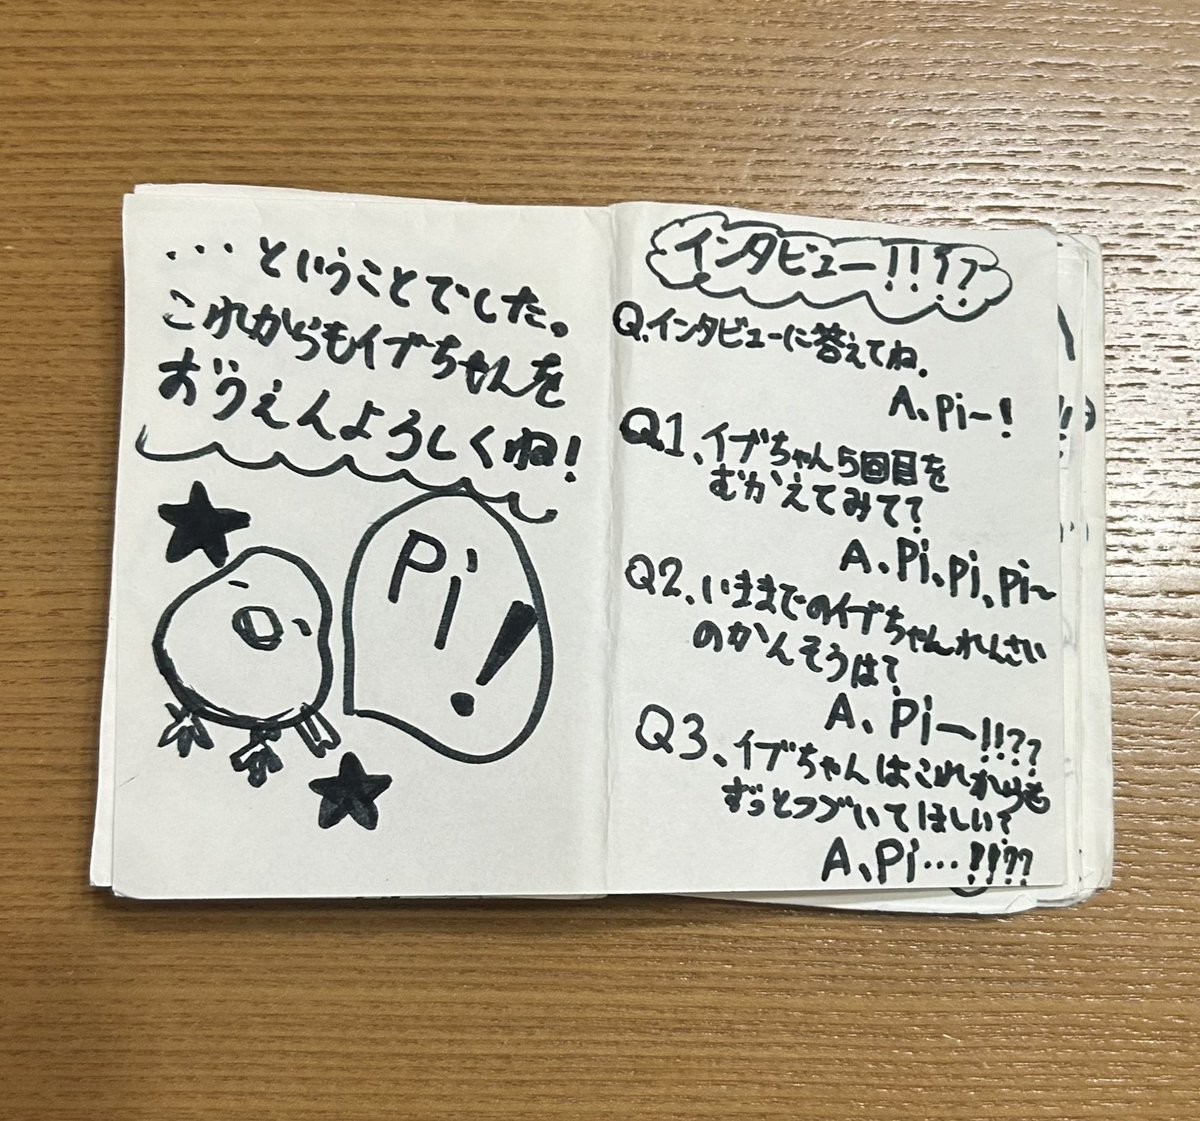 …ということでした。
これからもイブちゃんを
おうえんよろしくね!
Pi!
インタビュー!!??
Q.インタビューに答えてね.
A、Pi〜!
Q1、イブちゃん5回目を
むかえてみて?
A、Pi、Pi、Pi〜
Q2、いままでのイブちゃんれんさい
のかんそうは?
A、Pi〜!!??
Q3、イブちゃんはこれからも
ずっとつづいてほしい?
A、Pi…!!??